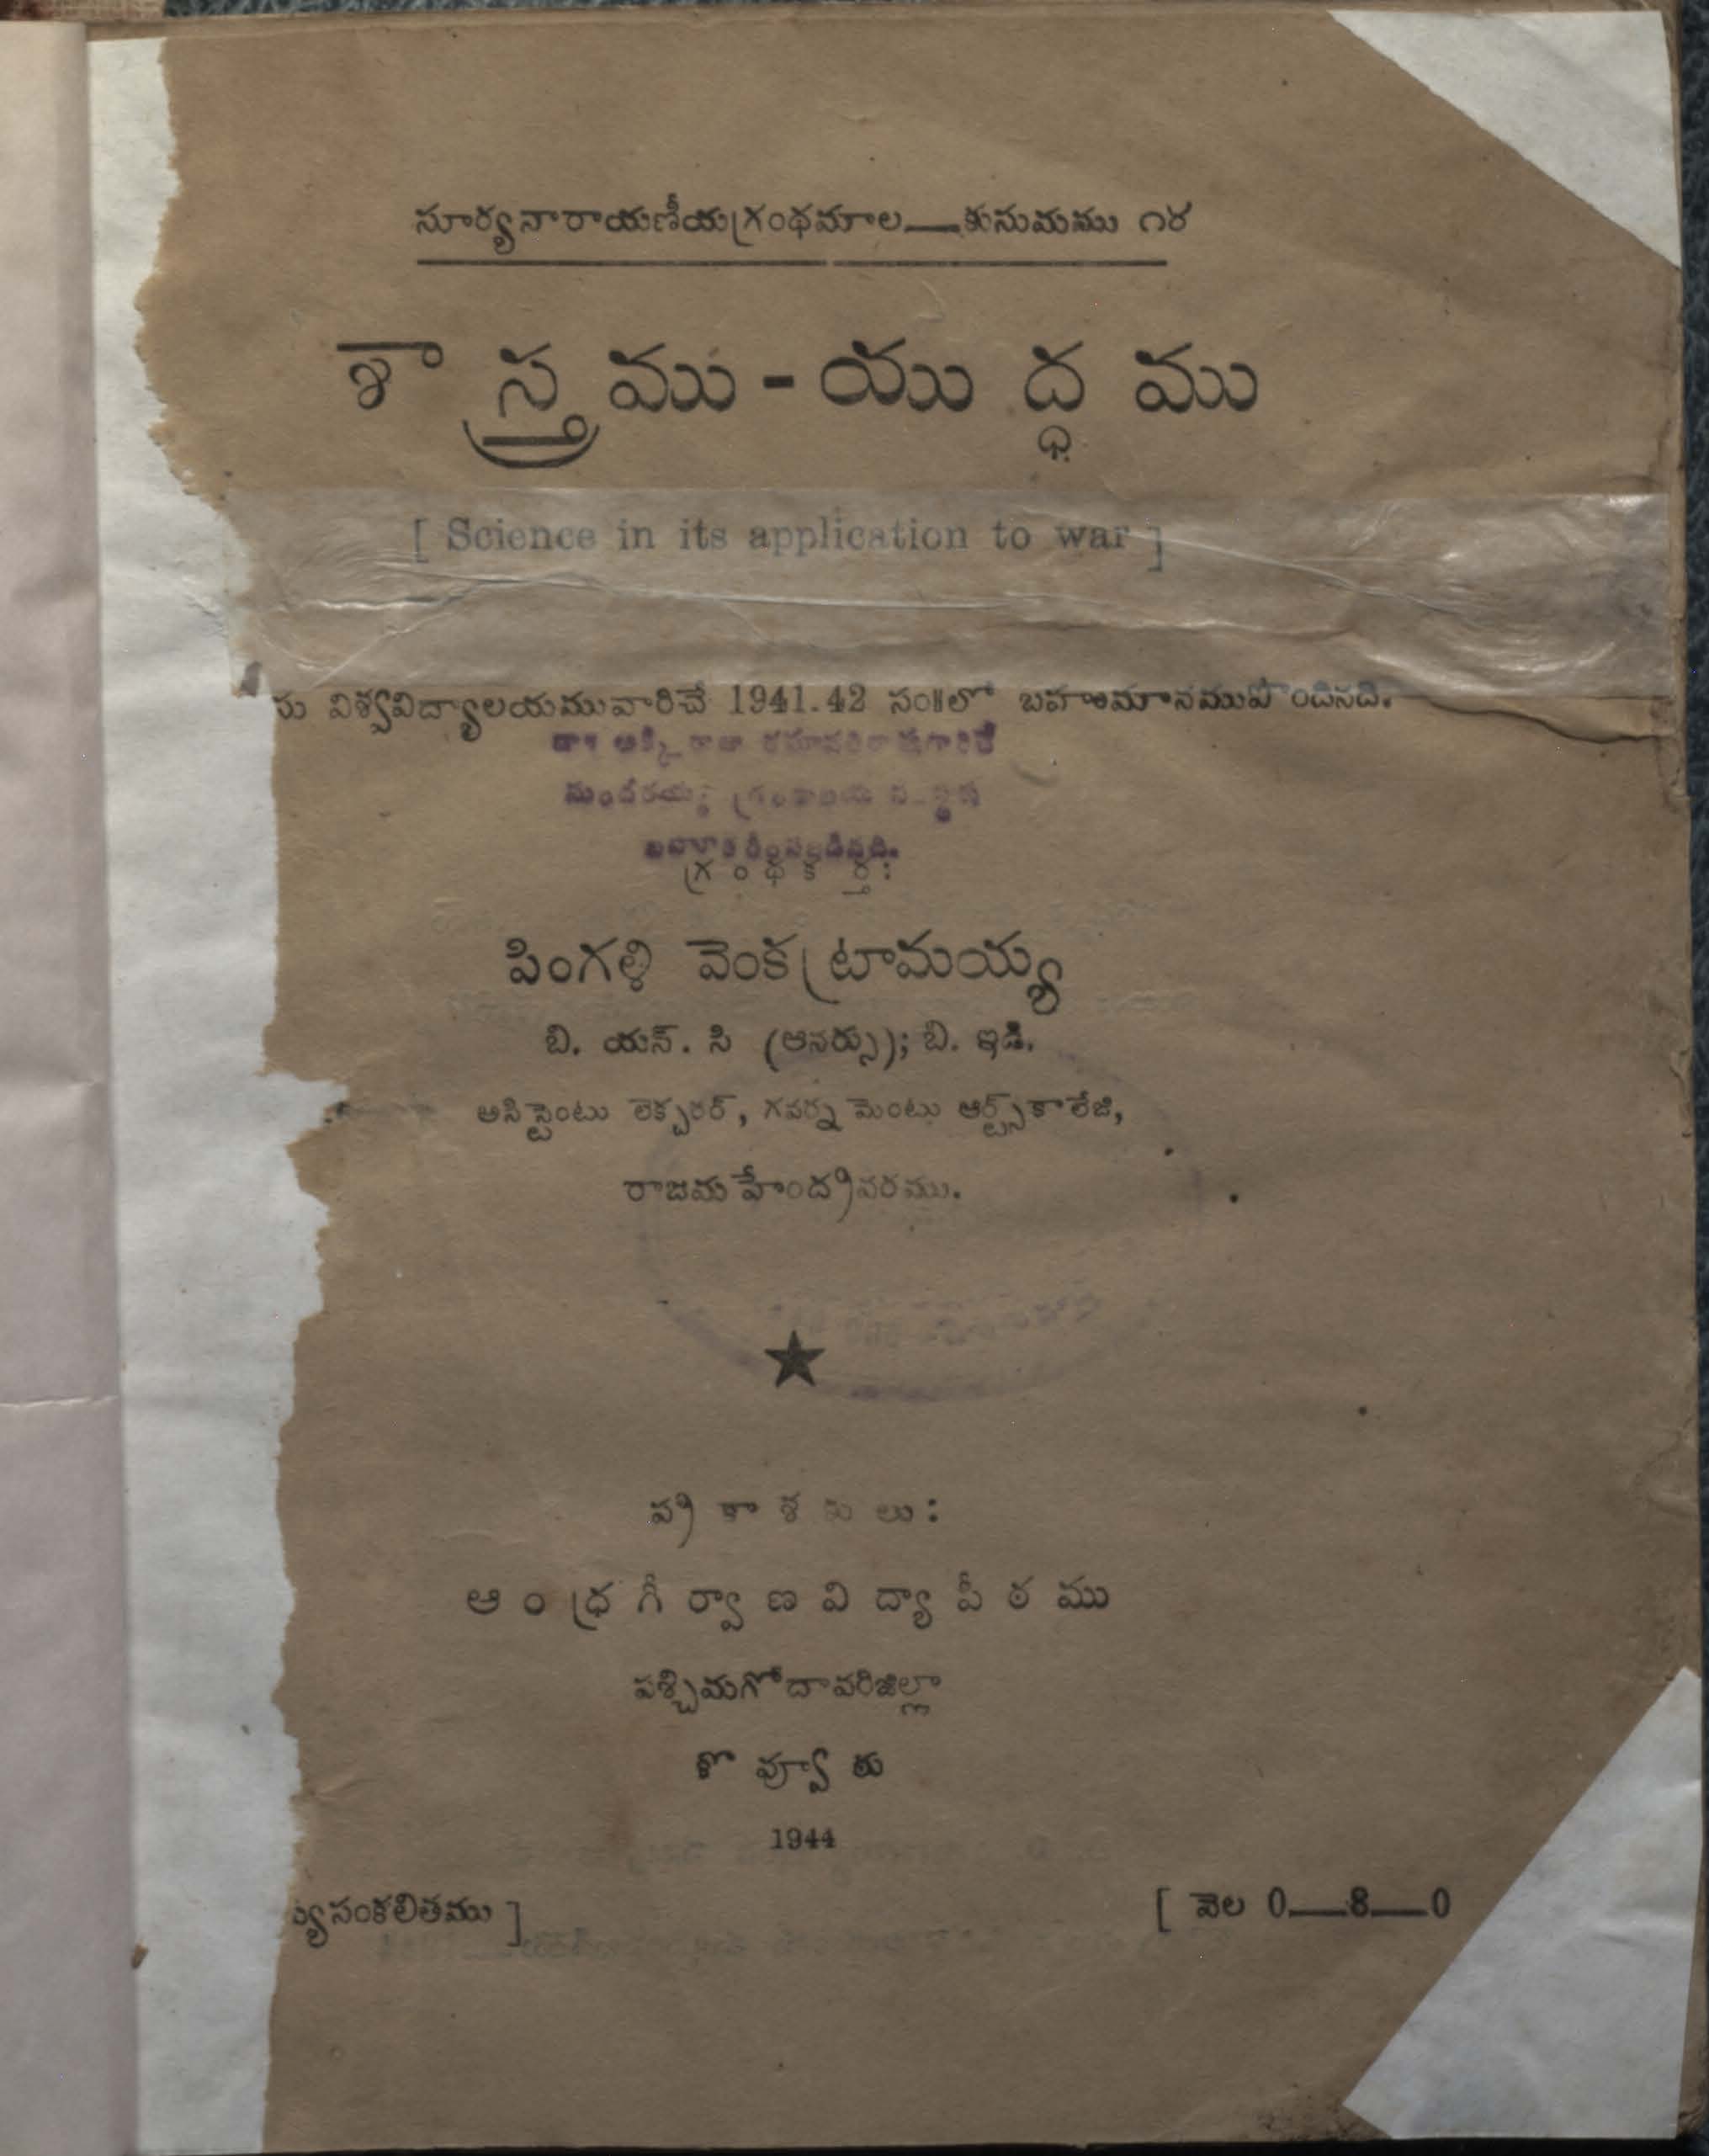 సూర్యనారాయణీయగ్రంథమాల—కుసుమము ౧౪
శాస్త్రము - యుద్ధము
[ Science in its application to war ]
సు విశ్వవిద్యాలయమువారిచే 1941.42 సం॥లో బహుమానముపొందినది.
గ్రంథకర్త:
పింగళి వెంకట్రామయ్య
బి. యస్. సి (ఆనర్సు); బి. ఇడి.
అసిస్టెంటు లెక్చరర్, గవర్నమెంటు ఆర్ట్స్‌కాలేజి,
రాజమహేంద్రివరము.
ప్రకాశకులు:
ఆంధ్రగీర్వాణవిద్యాపీఠము
పశ్చిమగోదావరిజిల్లా
కొవ్వూరు
1944
వ్యసంకలితము ]
[ వెల 0—8—0